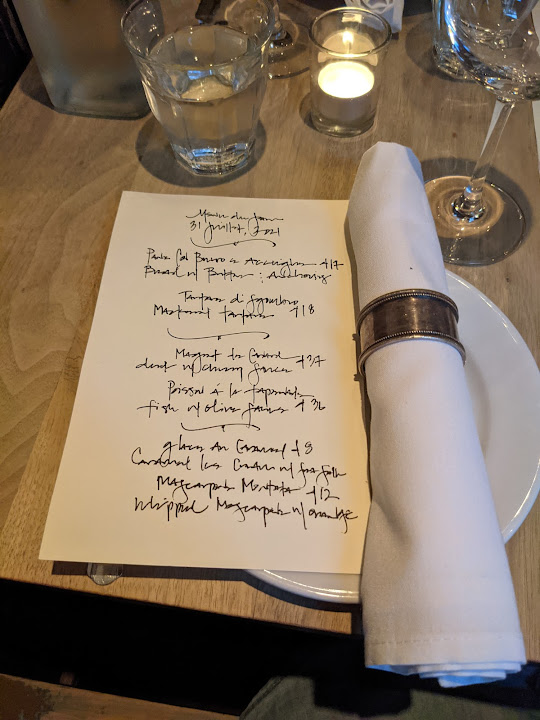 Menu du Jour
31 Juillet, 2021
Pane Col Burro e Acciughe +17
Bread w/ Butter; Anchovies
Tartar di Sgombro
Mackerel tartare +18
Magret de Canard +37
duck w/ cherry sauce
Poisson à la tapenade
fish w/ olive sauce +36
glace au Caramel +8
Caramel Ice Cream w/
Mascarpone Montata +12
Whipped Mascarpone w/ orange